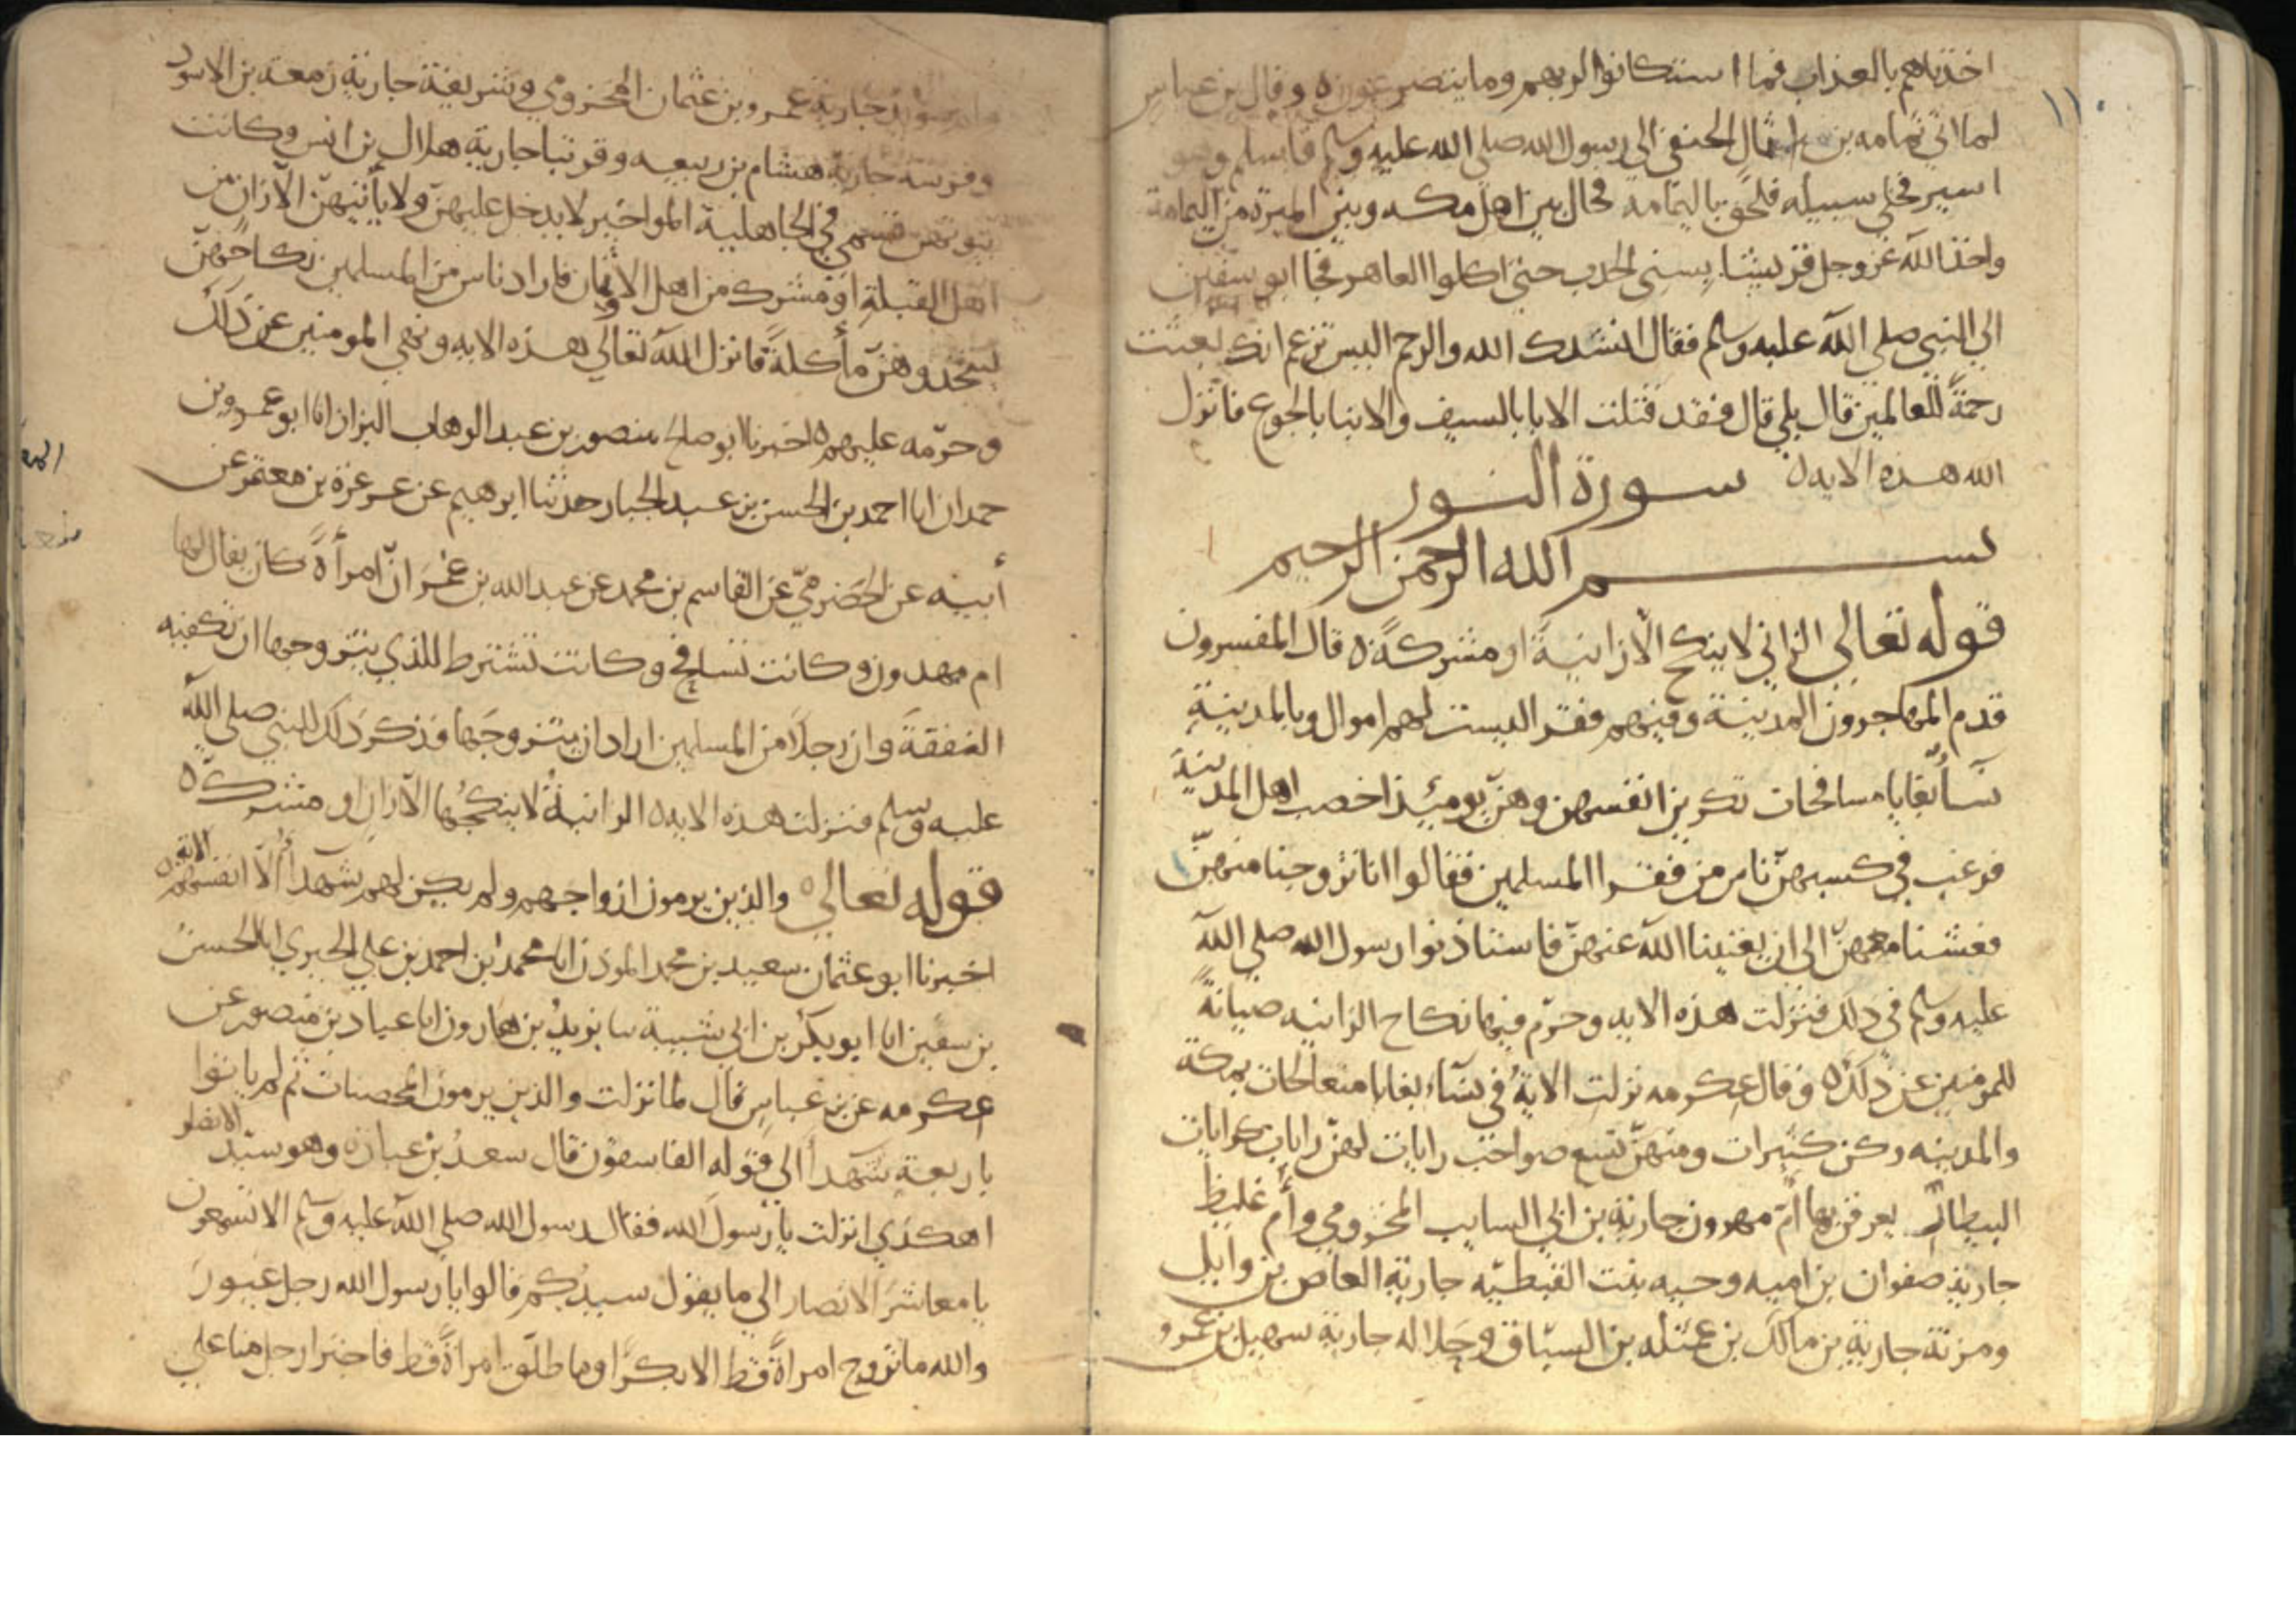 ١١٠
اخذناهم بالعذاب فما استكانوا لربهم وما يتضرعون ٥ وقال بن عباس
لما اتى ثمامه بن اثال الحنفي الى رسول الله صلى الله عليه وسلم فاسلم وهو
اسير فخلى سبيله فلحق باليمامة فحال بين اهل مكه وبين الميرة من اليمامة
واخذ الله عز وجل قريشا بسني الجدب حتى اكلوا العلهز فجا ابو سفين
الى النبي صلى الله عليه وسلم فقال انشدك الله والرحم اليس تزعم انك بعثت
رحمةً للعالمين قال بلى قال فقد قتلت الابا بالسيف والابنا بالجوع فانزل
الله هذه الايه ٥ سورة النور
بسم الله الرحمن الرحيم
قوله تعالى الزاني لا ينكح الا زانيةً او مشركةً ٥ قال المفسرون
قدم المهاجرون المدينة وفيهم فقرا ليست لهم اموال وبالمدينةِ
نسآٌ بغايا مسافحات تكرين انفسهن وهنّ يوميئذ اخصب اهل المدينةِ
فرغب في كسبهنّ ناس من فقرا المسلمين فقالوا انا تزوجنا منهنّ
فعشنا معهنّ الى ان يغنينا الله عنهنّ فاستاذنوا رسول الله صلى الله
عليه وسلم في ذلك فنزلت هذه الايه وحرّم فيها نكاح الزانيه صيانةً
للمومنين عن ذلك ٥ وقال عكرمه نزلت الايةُ في نسآء بغايا متعالجات بمكة
والمدينه وكن كثيرات ومنهنّ تسع صواحب رايات لهنّ رايات كرايات
البيطار يعرفن بها امّ مهدون جارية بن ابي السايب المخزومي وأم غليظ
جارية صفوان بن اميه وحيه بنت القبطيّه جارية العاص بن وايل
ومزنة جارية بن مالك بن عمثله بن السبّاق وجلاله جارية سهيل بن عمرو
جارية عمرو بن عثمان المخزومي وشريفة جارية زمعة بن الاسود
وفرسه جارية هشام بن ربيعه وقرتبا جارية هلال بن انس وكانت
بيوتهن تسمى في الجاهلية المواخير لا يدخل عليهنّ ولا يأتيهنّ الا زانٍ من
اهل القبلةِ او مشرك من اهل الاوثان فاراد ناس من المسلمين نكاحهنّ
ليتخذوهنّ مأكلةً فانزل الله تعالى هذه الايه ونهى المومنين عن ذلك
وحرّمه عليهم ٥ اخبرنا ابو صالح منصور بن عبد الوهاب البزاز انا ابو عمرو بن
حمدان انا احمد بن الحسن بن عبد الجبار حدثنا ابرهيم عن عرعرة بن معتمر عن
أبيه عن الحَضرمىّ عن القاسم بن محمد عن عبد الله بن عُمَرَ انّ امرأةً كان يقال لها
ام مهدون وكانت تسافح وكانت تشترط للذي يتزوجها ان تكفيه
النفقةَ وان رجلاً من المسلمين اراد ان يتزوجَها فذكرَ ذلك للنبي صلى الله
عليه وسلم فنزلت هذه الايه ٥ الزانيةُ لا ينكحُها الا زانٍ او مشركٌ ٥
قوله تعالى ٥ والذين يرمون ازواجهم ولم يكن لهم شهدأُ الّا انفسهم الاية ٥
اخبرنا ابو عثمان سعيد بن محمد الموذن انا محمد بن احمد بن علي الحيري انا الحسنُ
بن سفين انا ابو بكر بن ابي شيبة نا يزيدُ بن هارون انا عباد بن منصور عن
عكرمه عن بن عباسٍ قال لما نزلت والذين يرمون المحصنات ثم لم ياتوا
باربعةِ شهدأ الى قوله الفاسقون قال سعدُ بن عبادة وهو سيّد الانصار
اهكذي انزلت يا رسولَ الله فقال رسول الله صلى الله عليه وسلم الا تسمعون
يا معاشرَ الانصار الى ما يقول سيدُكم قالوا يا رسول الله رجل غيور
والله ما تزوج امراةً قط الا بكرًا وما طلّق امراةً قط فاجترا رجل منا على